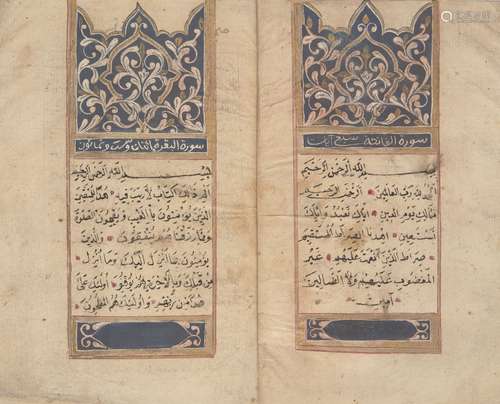 سورة الفاتحة سبع آيات
بسم الله الرحمن الرحيم
الحمد لله رب العالمين الرحمن الرحيم
مالك يوم الدين اياك نعبد واياك
نستعين اهدنا الصراط المستقيم
صراط الذين انعمت عليهم غير
المغضوب عليهم ولا الضالين
آمين
سورة البقرة مائتان وست وثمانون
بسم الله الرحمن الرحيم
الم ذلك الكتاب لا ريب فيه هدى للمتقين
الذين يؤمنون بالغيب ويقيمون الصلوة
ومما رزقناهم ينفقون والذين
يؤمنون بما انزل اليك وما انزل
من قبلك وبالآخرة هم يوقنون اولئك على
هدى من ربهم واولئك هم المفلحون